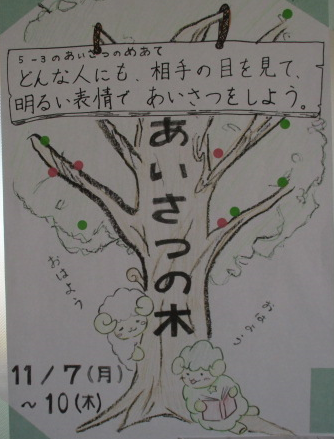 5-3のあいさつのめあて
どんな人にも、相手の目を見て、
明るい表情で あいさつをしよう。
あいさつの木
おはよう
おはよう
11/7(月)
~10(木)